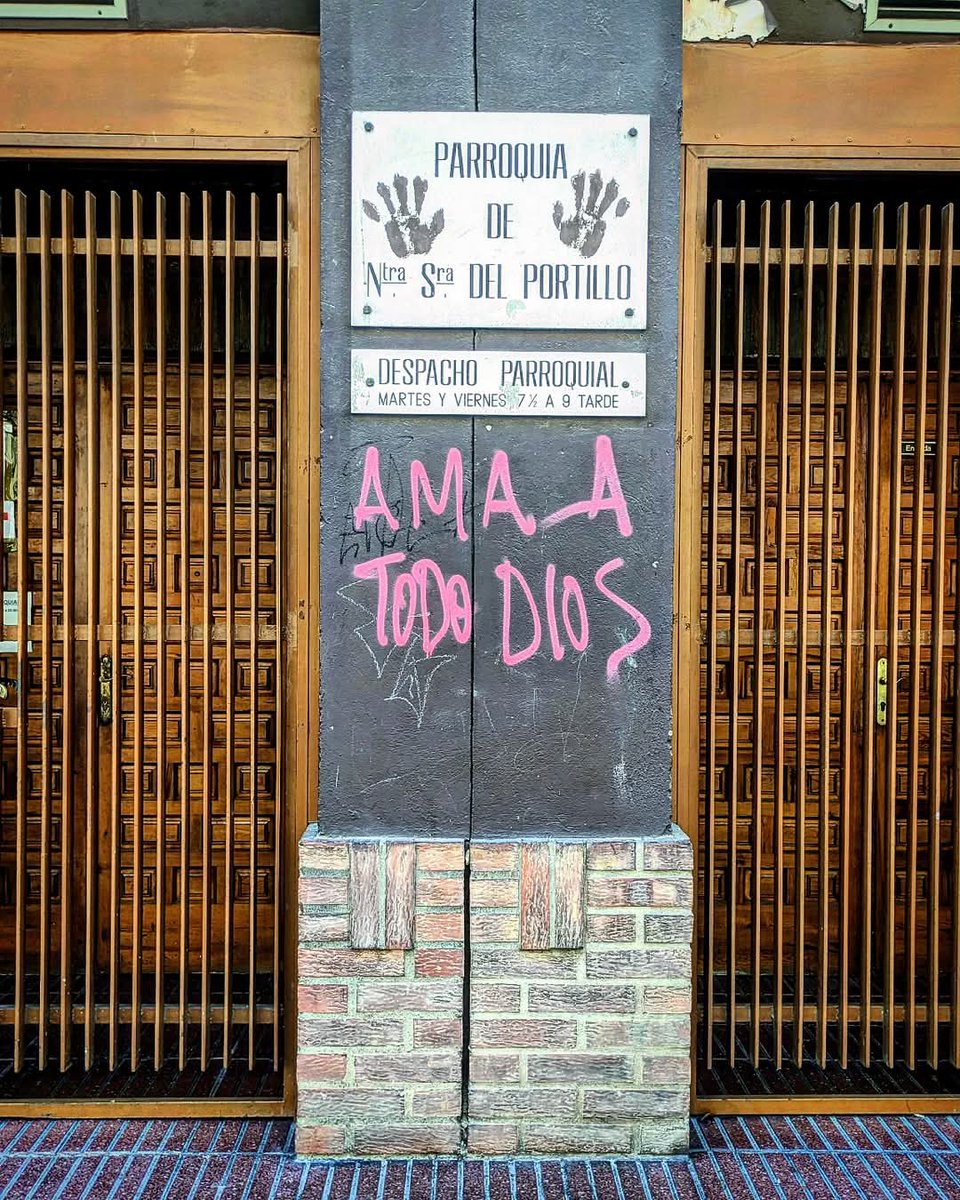 PARROQUIA
DE
Ntra. Sra. DEL PORTILLO
DESPACHO PARROQUIAL
MARTES Y VIERNES 7 ½ A 9 TARDE
AMA A
TODO DIOS
Entrada